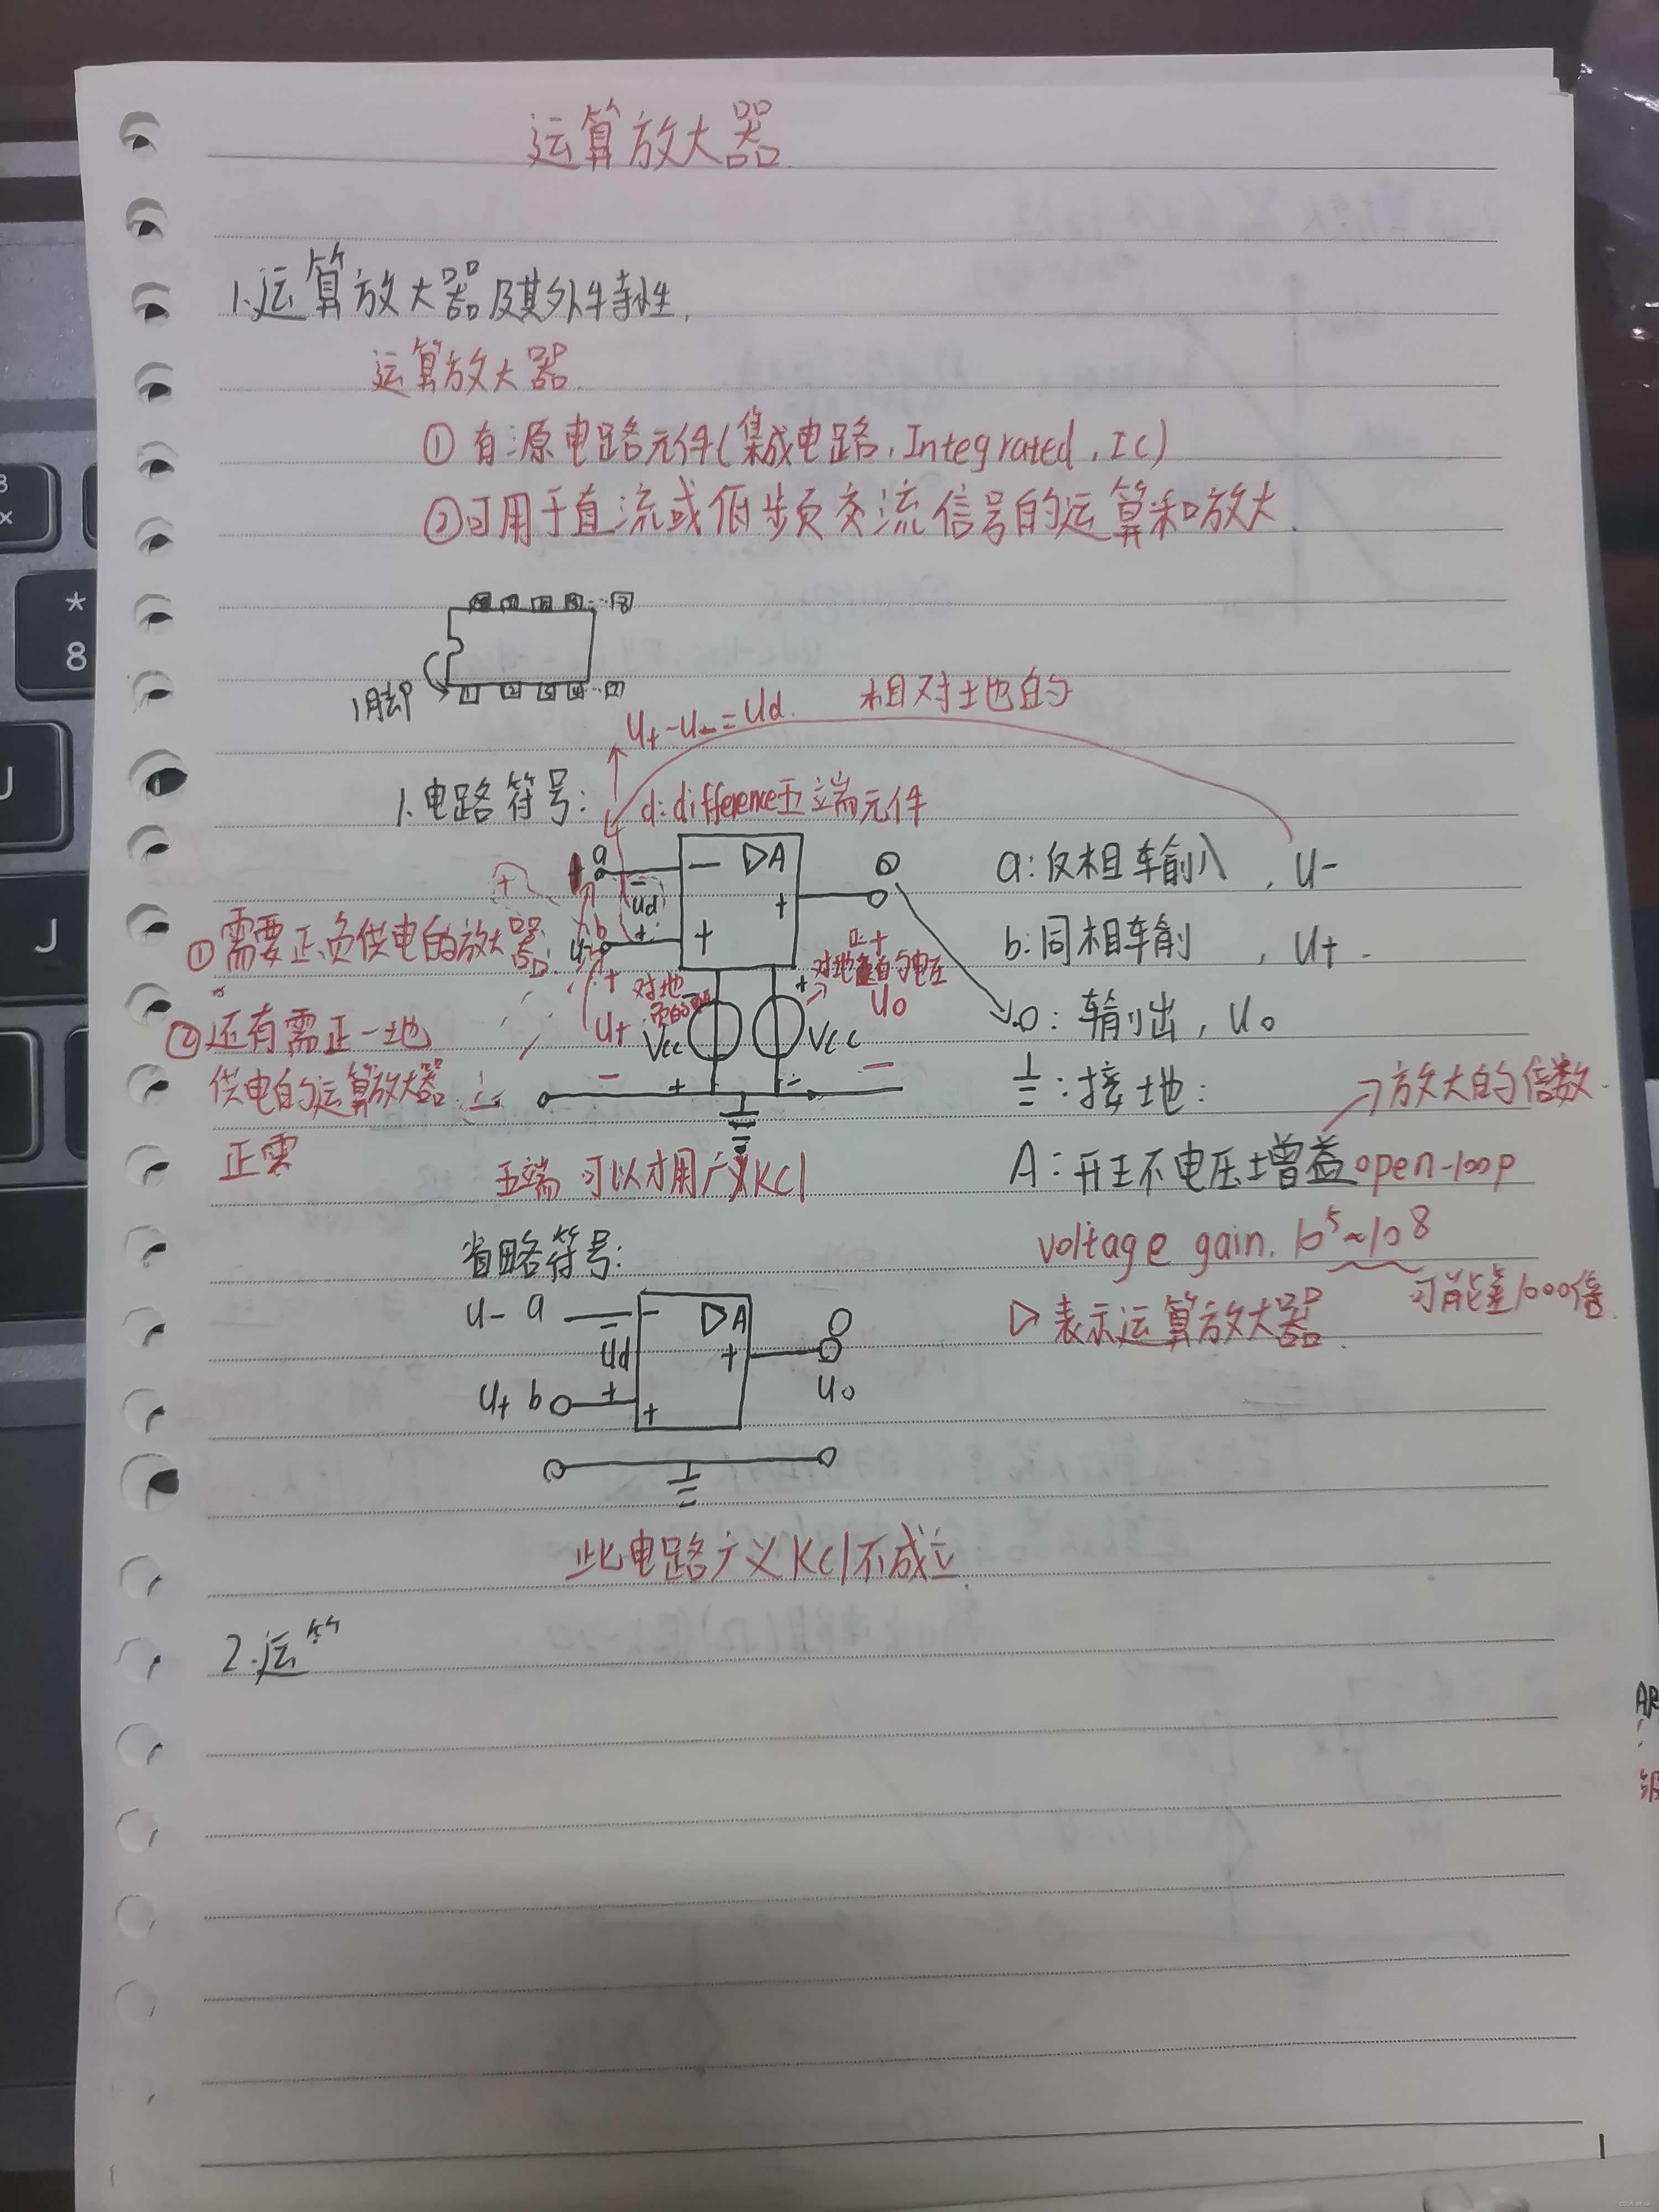 运算放大器
1.运算放大器及其外特性.
运算放大器.
①有源电路元件(集成电路,Integrated,IC)
②可用于直流或低频交流信号的运算和放大.
1脚 1 2 3
U+-U-=Ud. 相对土地的
1.电路符号: d:difference 五端元件
a - ▷A a:反相输入,U-
Ud
①需要正负供电的放大器
b + + + b:同相输 ,U+.
对地
对地 的电压
Uo
②还有需正一地
供电的运算放大器
正零
U+ Vcc Vcc
o:输出,Uo
⏚:接地:
→放大的倍数.
A:开环电压增益open-loop
五端 可以才用广义KCl
voltage gain. 10⁵~10⁸
可能差1000倍.
▷表示运算放大器.
省略符号:
U- a - ▷A o
Ud +
U+ b + + Uo
此电路广义KCl不成立.
2.运
* 8
J
J
1